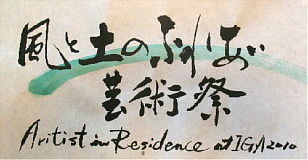 風と土のふれあい
芸術祭
Aritist in Residence at IGA 2010